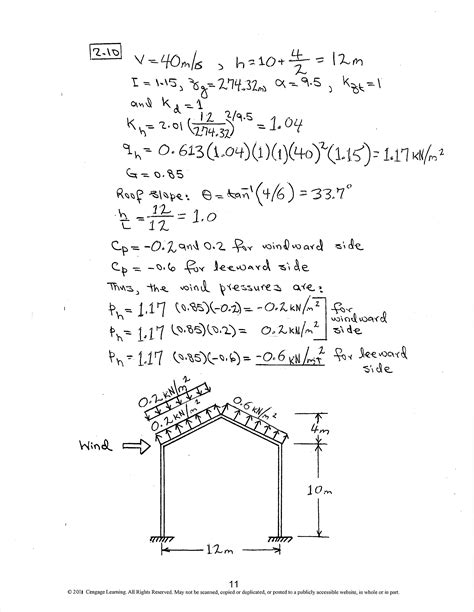 2.10 V = 40 m/s , h = 10 + 4/2 = 12 m
I = 1.15, zg = 274.32 m, α = 9.5 , Kzt = 1
and Kd = 1
Kh = 2.01 (12/274.32)^2/9.5 = 1.04
qh = 0.613(1.04)(1)(1)(40)²(1.15) = 1.17 kN/m²
G = 0.85
Roof slope: θ = tan⁻¹(4/6) = 33.7°
h/L = 12/12 = 1.0
Cp = -0.2 and 0.2 for windward side
Cp = -0.6 for leeward side
Thus, the wind pressures are:
Ph = 1.17 (0.85)(-0.2) = -0.2 kN/m² ] for
windward
Ph = 1.17 (0.85)(0.2) = 0.2 kN/m² ] side
Ph = 1.17 (0.85)(-0.6) = -0.6 kN/m² for leeward
side
0.2 kN/m²
0.2 kN/m²
0.6 kN/m²
4m
Wind
10m
12m
11
© 2011 Cengage Learning. All Rights Reserved. May not be scanned, copied or duplicated, or posted to a publicly accessible website, in whole or in part.